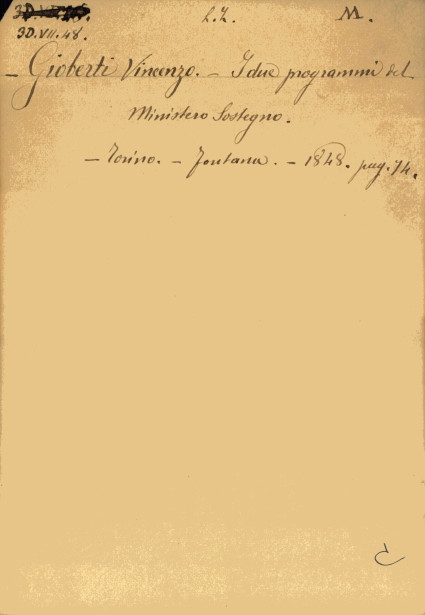 3D.VII.48.
L.Z. M.
– Gioberti Vincenzo. – I due programmi del
Ministero Sostegno.
– Torino. – Fontana. – 1848. pag. 14.